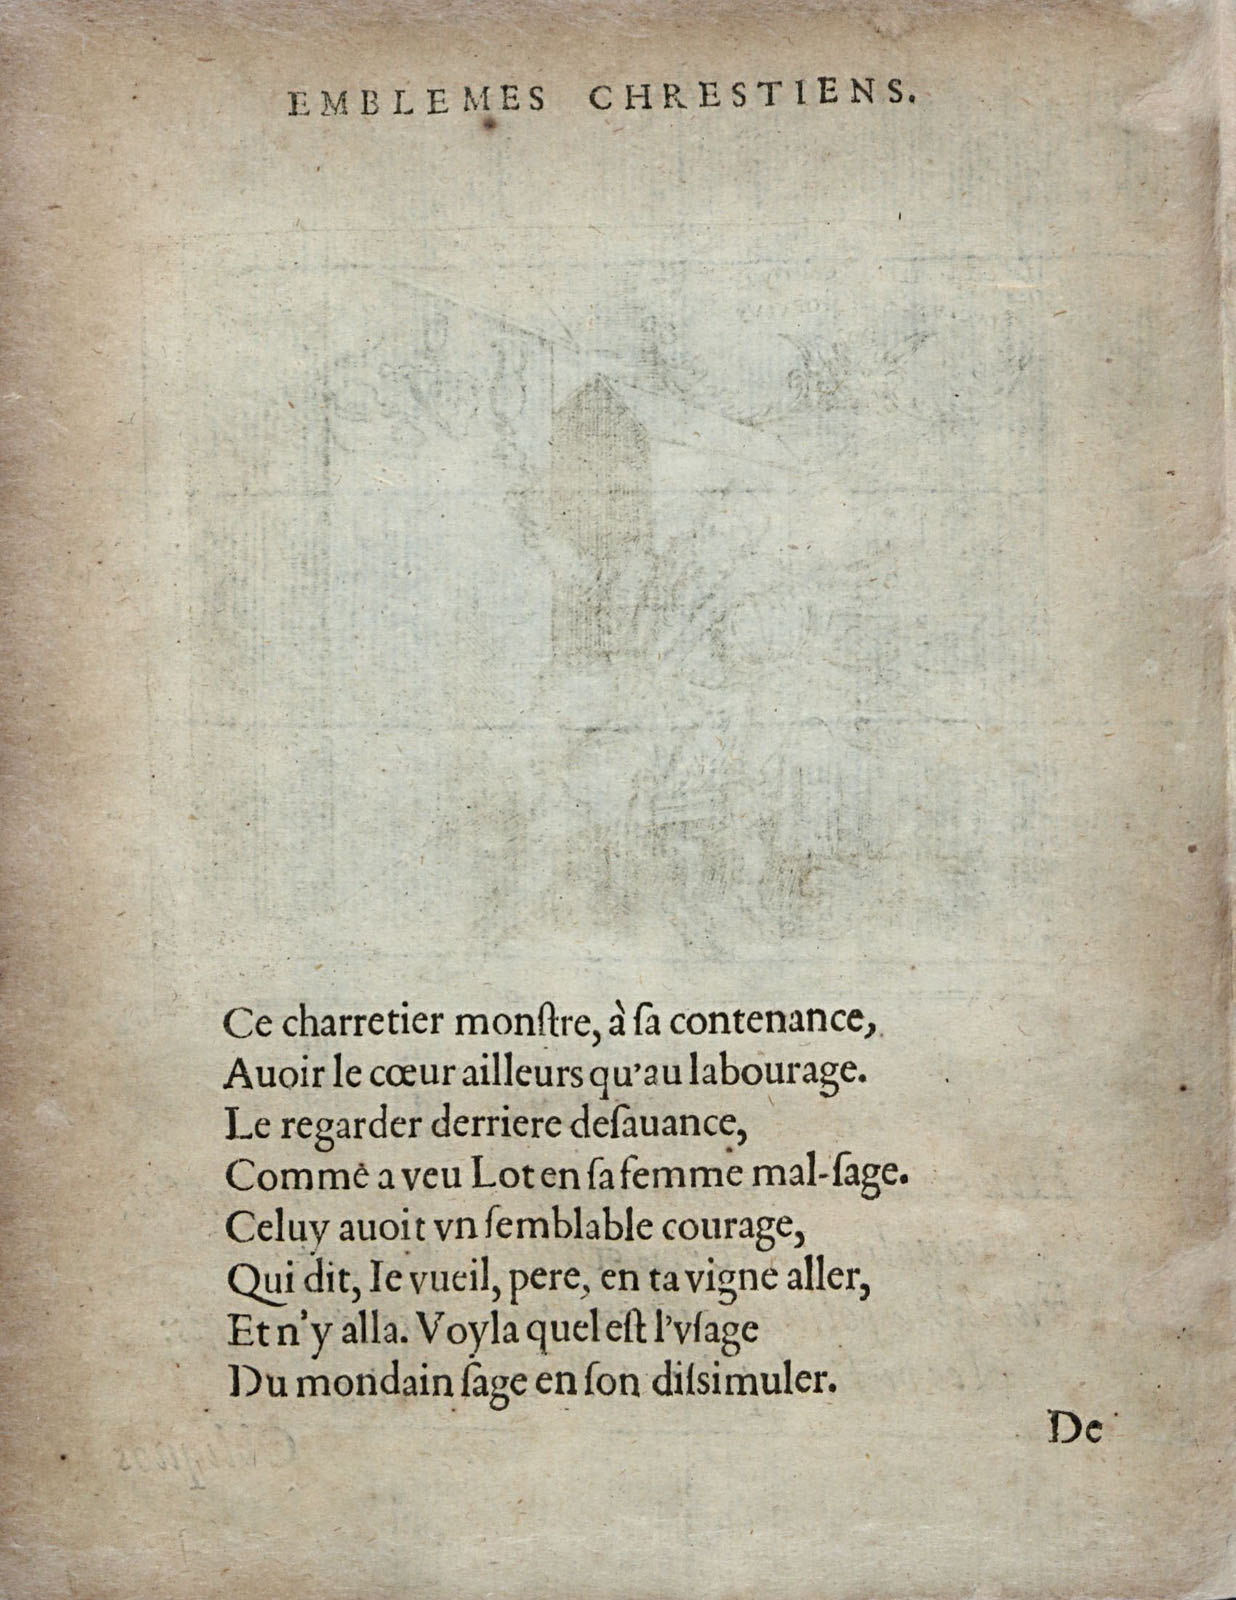 EMBLEMES CHRESTIENS.
Ce charretier monſtre, à ſa contenance,
Auoir le cœur ailleurs qu'au labourage.
Le regarder derriere deſauance,
Comme a veu Lot en ſa femme mal-ſage.
Celuy auoit vn ſemblable courage,
Qui dit, Ie vueil, pere, en ta vigne aller,
Et n'y alla. Voyla quel eſt l'vſage
Du mondain ſage en ſon diſsimuler.
De